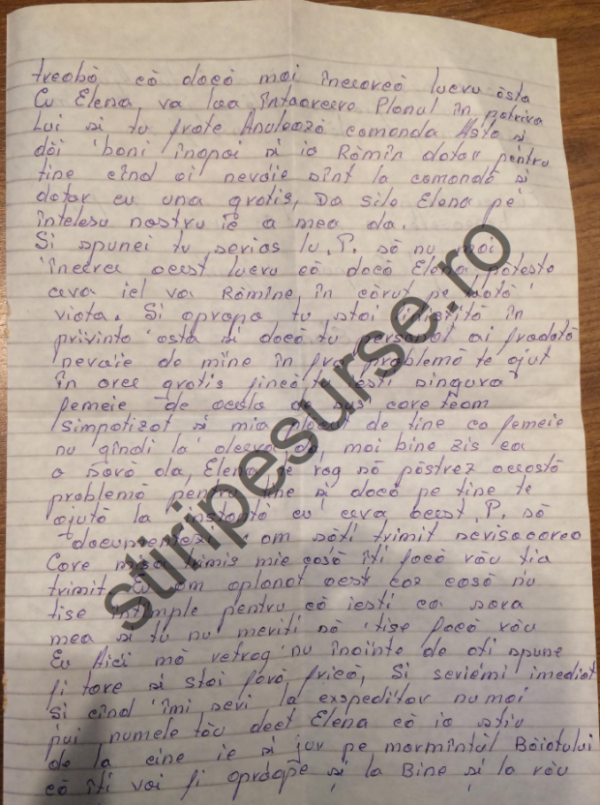 treabă că dacă mai încearcă lucru ăsta
Cu Elena, va lua întoarcere Planul în potriva
Lui și tu frate Anulează comanda Asta și
dăi bani înapoi și io Rămîn dator pentru
tine cînd ai nevoie sînt la comandă și
dator cu una gratis, Da silo Elena pe
întelesu nostru ie a mea da.
Si spunei tu serios lu. P. să nu mai
încerce acest lucru că dacă Elena pățeste
ceva iel va Rămîne în căruț pe toată
viata. Si apropa tu stai liniștită în
privinto asta și dacă tu personal ai vreodată
nevoie de mine în vreo problemă te ajut
în orce gratis fincă tu iesti singura
femeie de acolo de sus care team
simpatizat și mia plăcut de tine ca femeie
nu gîndi la altceva da, mai bine zis ca
o soră da, Elena te rog să păstrez această
problemă pentru tine și dacă pe tine te
ajută la instantă cu ceva acest P. să
documentezi om săti trimit scrisoarea
Care mia trimis mie casă îți facă rău tia
trimit. Eu am aplanat acest caz casă nu
tise întîmple pentru că iesti ca sora
mea si tu nu meriti să tise facă rău
Eu Aici mă retrag nu înainte de ati spune
fi tare si stai fără frică, Si seriémi imediat
Si cînd îmi scri la expeditor numai
pui numele tău decît Elena că io știu
de la cine ie si jur pe mormîntul Băiatului
că îti voi fi aproape și la Bine și la rău
suripesurse.ro